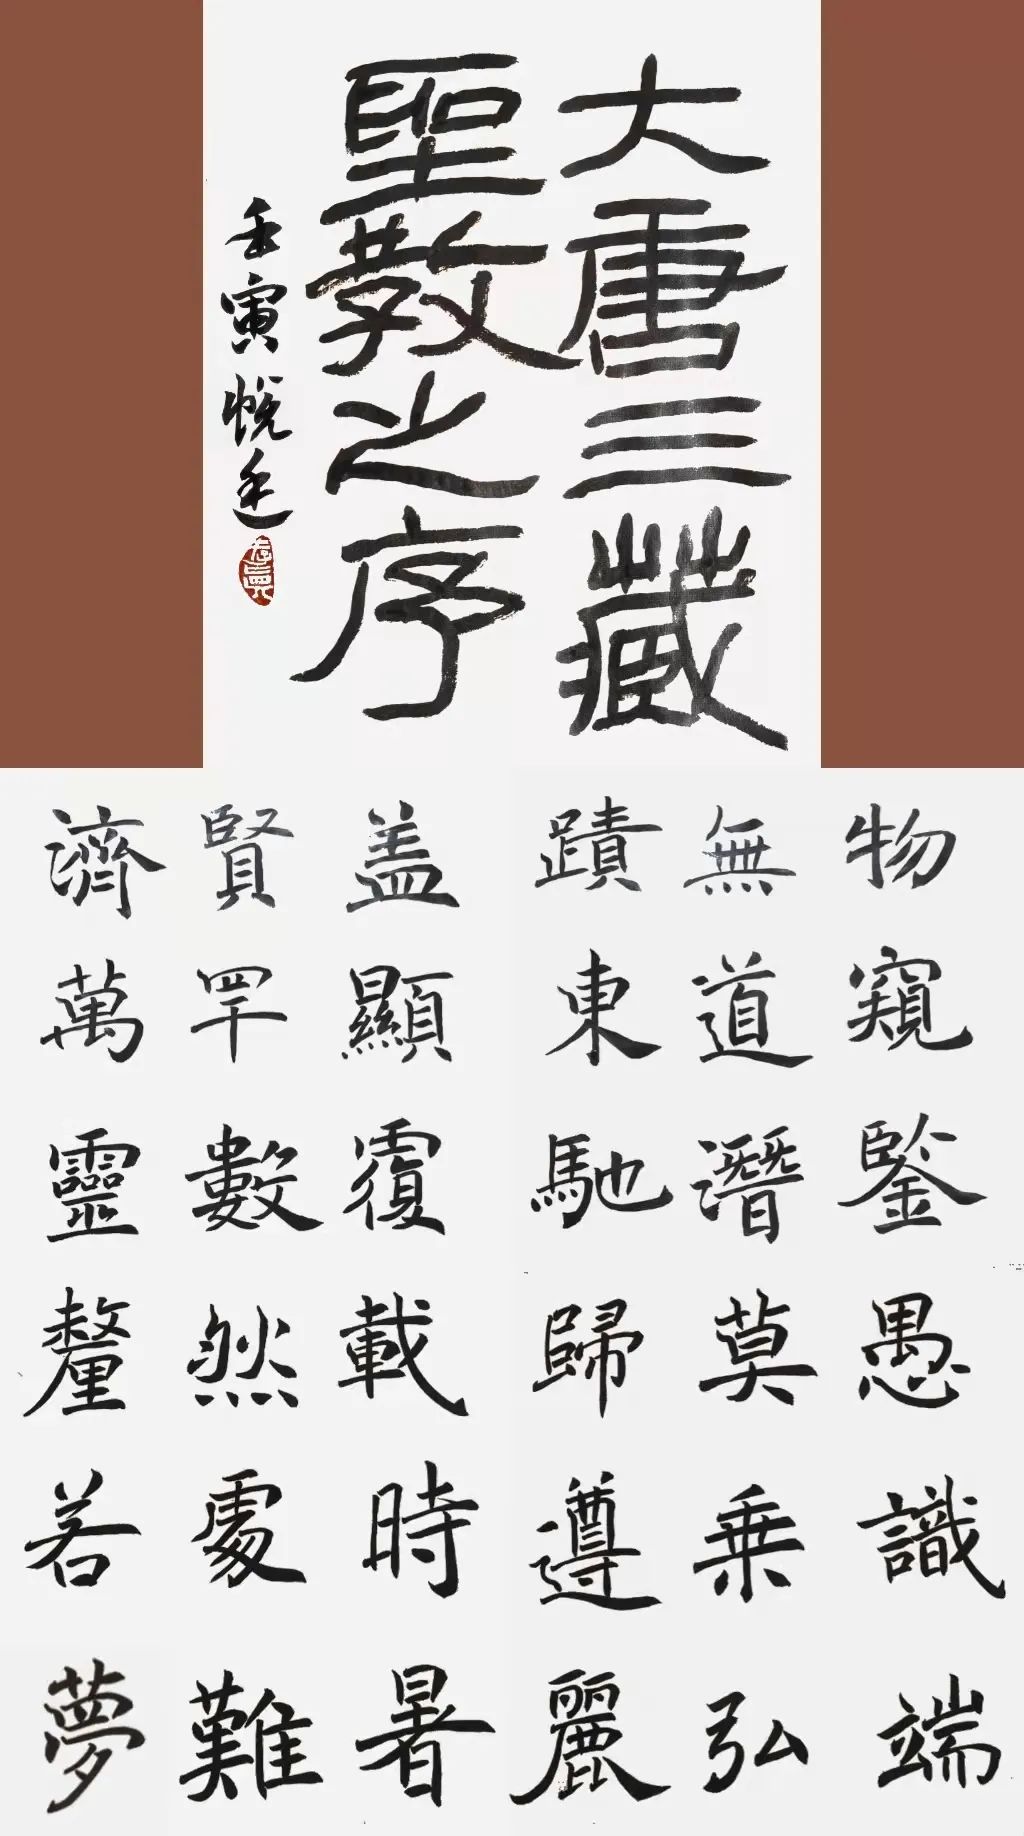 大唐三藏
聖教之序
壬寅悅廷
物窺鑒愚識端
無道潛莫乗弘
蹟東馳歸遵麗
盖顯覆載時暑
賢罕數然處難
濟萬靈釐若夢